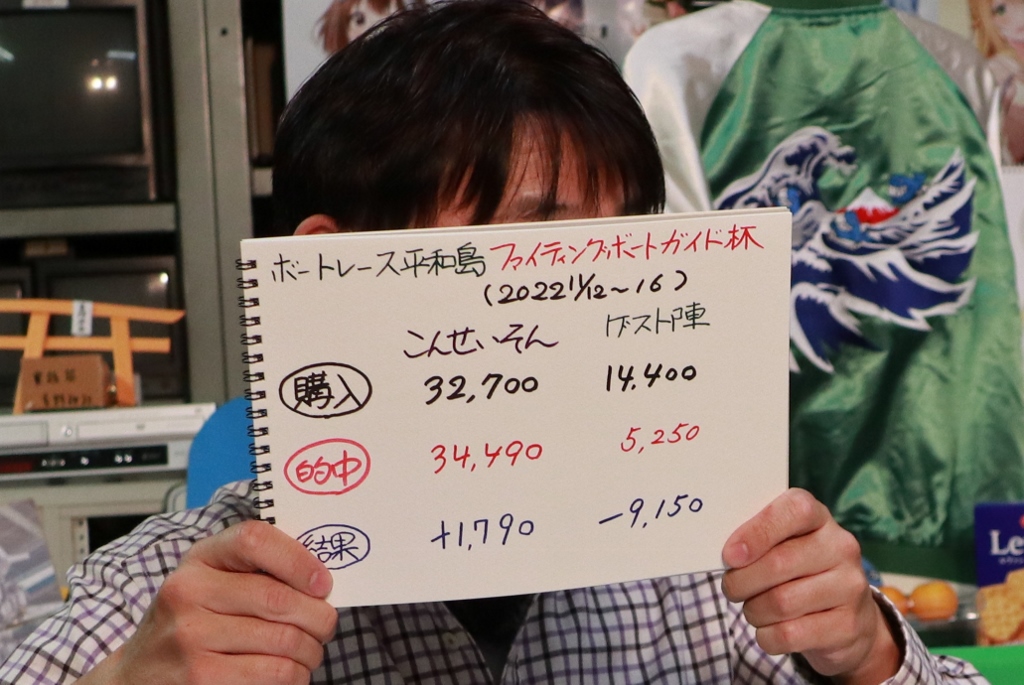 ボートレース平和島 ファイティングボートガイド杯
(2022 11/12〜16)
こんせいそん ゲスト陣
購入 32,700 14,400
的中 34,490 5,250
結果 +1,790 -9,150
Le